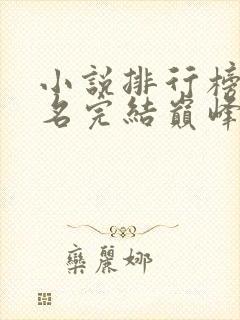 小說排行榜
名完結巔峰
欒麗娜